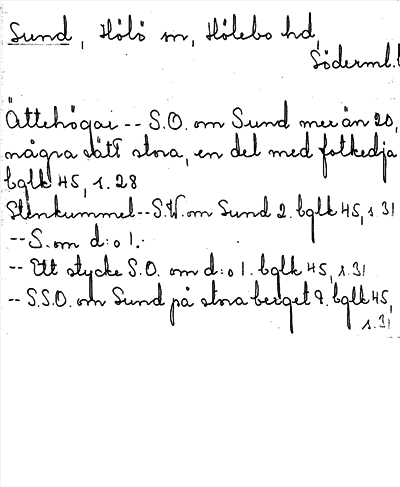 Sund, Hölö sn, Hölebo hd,
Söderml.l
Ättehögar -- S.O. om Sund mer än 20,
några rätt stora, en del med fotkedja
bglk 45, s. 28
Stenkummel -- S.W. om Sund 2. bglk 45, s 31
-- S. om d:o 1.
-- Ett stycke S.O. om d:o 1. bglk 45, s. 31
-- S.S.O. om Sund på stora berget 9. bglk 45,
s. 31